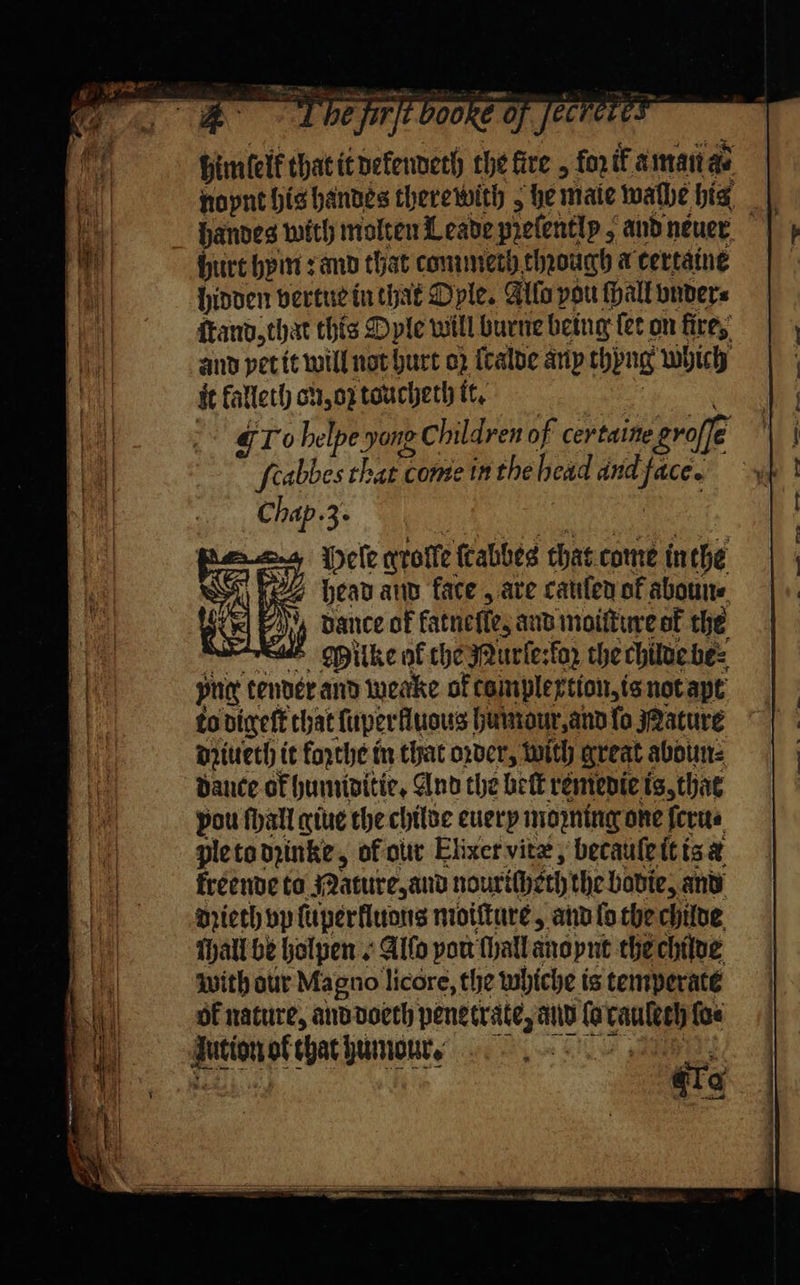 4 The first booke of secretes
himſelf that it defendeth the fire, for if a man an
noynt his handes therewith, he maie waſhe his
handes with molten Leade preſently, and neuer
hurt hym: and that commeth through a certaine
hidden vertue in that Oyle. Alſo you ſhall vnder-
ſtand, that this Oyle will burne being ſet on fire,
and yet it will not hurt or ſcalde any thyng which
it falleth on, or toucheth it.
¶To helpe yong Children of certaine groſſe
ſcabbes that come in the head and face.
Chap.3.
Theſe groſſe ſcabbes that come in the
head and face, are cauſed of aboun-
dance of fatneſſe, and moiſture of the
Milke of the Nurſe: for the childe be-
yng tender and weake of complextion, is not apt
to digeſt that ſuperfluous humour, and ſo Nature
driueth it forthe in that order, with great aboun-
dance of humiditie, And the beſt remedie is, that
you ſhall giue the childe euery morning one ſcru-
ple to drinke, of our Elixer vitæ, becauſe it is a
freende to Nature, and nouriſheth the bodie, and
drieth vp ſuperfluous moiſture, and ſo the childe
ſhall be holpen. Alſo you ſhall anoynt the childe
with our Magno licore, the whiche is temperate
of nature, and doeth penetrate, and ſo cauſeth ſo-
lution of that humour.
¶To